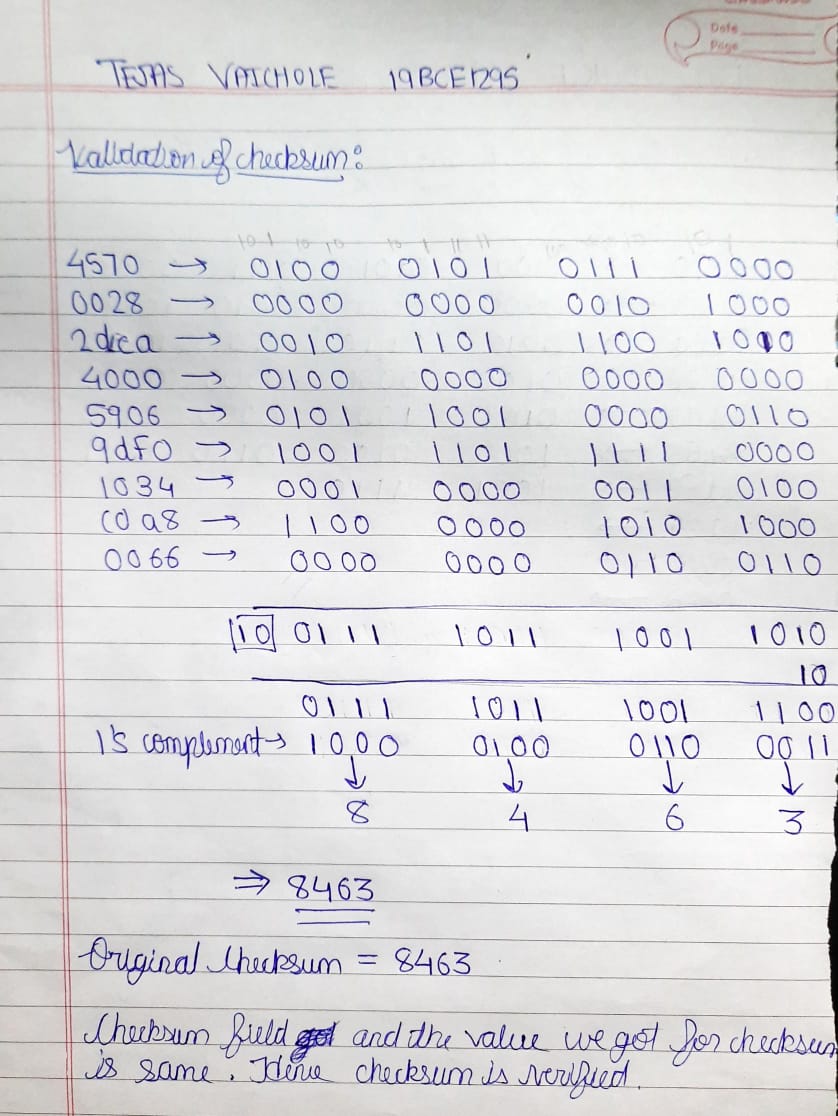 Date
Page
TEJAS VAICHOLE 19BCE1295
Validation of checksum:
4570 → 0100 0101 0111 0000
0028 → 0000 0000 0010 1000
2dca → 0010 1101 1100 1010
4000 → 0100 0000 0000 0000
5906 → 0101 1001 0000 0110
9df0 → 1001 1101 1111 0000
1034 → 0001 0000 0011 0100
c0a8 → 1100 0000 1010 1000
0066 → 0000 0000 0110 0110
10 0111 1011 1001 1010
10
0111 1011 1001 1100
1's complement → 1000 0100 0110 0011
↓ ↓ ↓ ↓
8 4 6 3
⇒ 8463
Original Checksum = 8463
Checksum field and the value we got for checksum
is same. Hence checksum is verified.